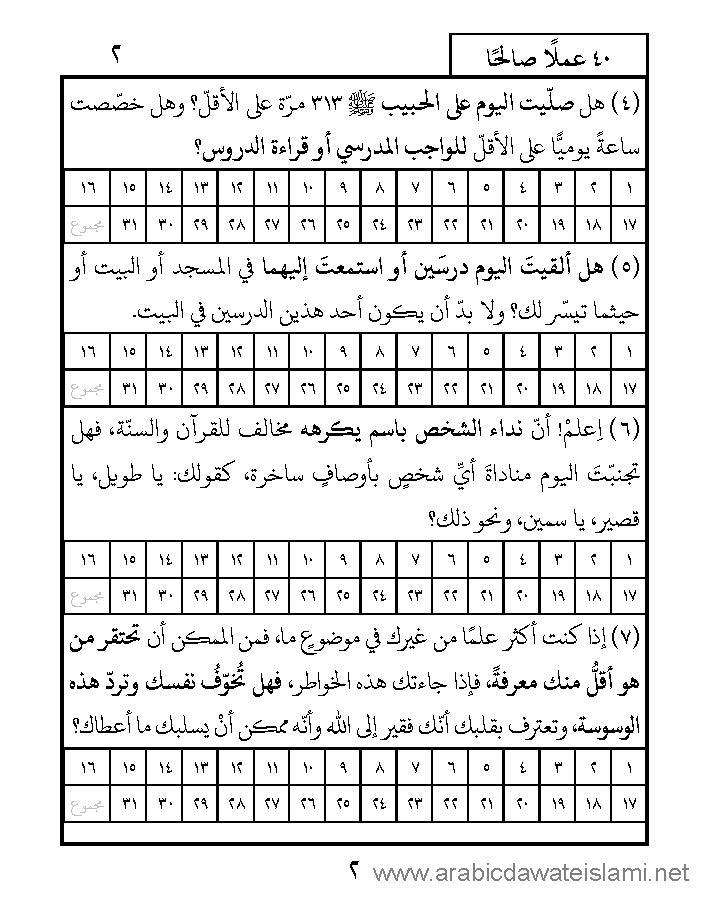 ٤٠ عملًا صالحًا
٢
(٤) هل صلّيت اليوم على الحبيب ﷺ ٣١٣ مرّة على الأقلّ؟ وهل خصّصت
ساعةً يوميًّا على الأقلّ للواجب المدرسي أو قراءة الدروس؟
١ ٢ ٣ ٤ ٥ ٦ ٧ ٨ ٩ ١٠ ١١ ١٢ ١٣ ١٤ ١٥ ١٦
١٧ ١٨ ١٩ ٢٠ ٢١ ٢٢ ٢٣ ٢٤ ٢٥ ٢٦ ٢٧ ٢٨ ٢٩ ٣٠ ٣١ مجموع
(٥) هل ألقيتَ اليوم درسَين أو استمعتَ إليهما في المسجد أو البيت أو
حيثما تيسّر لك؟ ولا بدّ أن يكون أحد هذين الدرسين في البيت.
١ ٢ ٣ ٤ ٥ ٦ ٧ ٨ ٩ ١٠ ١١ ١٢ ١٣ ١٤ ١٥ ١٦
١٧ ١٨ ١٩ ٢٠ ٢١ ٢٢ ٢٣ ٢٤ ٢٥ ٢٦ ٢٧ ٢٨ ٢٩ ٣٠ ٣١ مجموع
(٦) اِعلمْ! أنّ نداء الشخص باسم يكرهه مخالف للقرآن والسنّة، فهل
تجنبّتَ اليوم مناداةَ أيِّ شخصٍ بأوصافٍ ساخرة، كقولك: يا طويل، يا
قصير، يا سمين، ونحو ذلك؟
١ ٢ ٣ ٤ ٥ ٦ ٧ ٨ ٩ ١٠ ١١ ١٢ ١٣ ١٤ ١٥ ١٦
١٧ ١٨ ١٩ ٢٠ ٢١ ٢٢ ٢٣ ٢٤ ٢٥ ٢٦ ٢٧ ٢٨ ٢٩ ٣٠ ٣١ مجموع
(٧) إذا كنت أكثر علمًا من غيرك في موضوعٍ ما، فمن الممكن أن تحتقر من
هو أقلُّ منك معرفةً، فإذا جاءتك هذه الخواطر، فهل تُخوّفُ نفسك وتردّ هذه
الوسوسة، وتعترف بقلبك أنّك فقير إلى الله وأنّه ممكن أنْ يسلبك ما أعطاك؟
١ ٢ ٣ ٤ ٥ ٦ ٧ ٨ ٩ ١٠ ١١ ١٢ ١٣ ١٤ ١٥ ١٦
١٧ ١٨ ١٩ ٢٠ ٢١ ٢٢ ٢٣ ٢٤ ٢٥ ٢٦ ٢٧ ٢٨ ٢٩ ٣٠ ٣١ مجموع
٢
www.arabicdawateislami.net